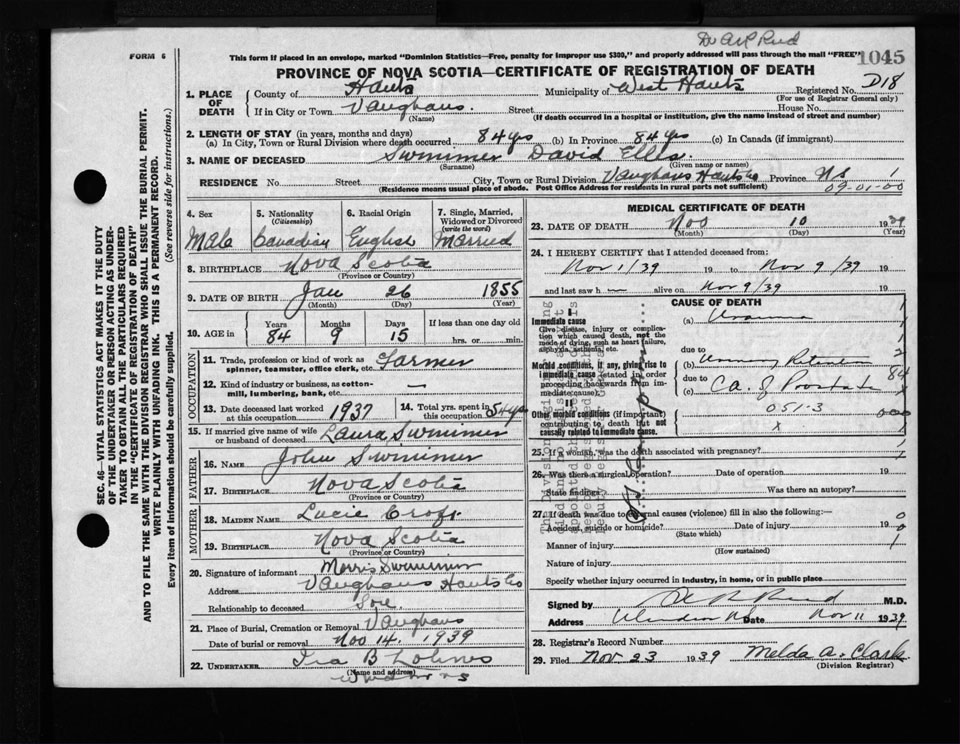 Dr A R Reid
FORM 6
This form if placed in an envelope, marked "Dominion Statistics—Free, penalty for improper use $300," and properly addressed will pass through the mail "FREE"
1045
PROVINCE OF NOVA SCOTIA—CERTIFICATE OF REGISTRATION OF DEATH
1. PLACE OF DEATH
County of Hants Municipality of West Hants Registered No. D18
(For use of Registrar General only)
If in City or Town Vaughans. Street House No.
(Name) (If death occurred in a hospital or institution, give the name instead of street and number)
2. LENGTH OF STAY (in years, months and days)
(a) In City, Town or Rural Division where death occurred 84 yrs (b) In Province 84 yrs (c) In Canada (if immigrant)
3. NAME OF DECEASED Swinimer David Ellis.
(Surname) (Given name or names)
RESIDENCE No. Street City, Town or Rural Division Vaughans Hants Co Province NS 1
(Residence means usual place of abode. Post Office Address for residents in rural parts not sufficient) 09-01-00
SEC. 46—VITAL STATISTICS ACT MAKES IT THE DUTY
OF THE UNDERTAKER OR PERSON ACTING AS UNDER-
TAKER TO OBTAIN ALL THE PARTICULARS REQUIRED
IN THE "CERTIFICATE OF REGISTRATION OF DEATH"
AND TO FILE THE SAME WITH THE DIVISION REGISTRAR WHO SHALL ISSUE THE BURIAL PERMIT.
WRITE PLAINLY WITH UNFADING INK. THIS IS A PERMANENT RECORD.
Every item of information should be carefully supplied. (See reverse side for instructions.)
4. Sex
Male
5. Nationality
(Citizenship)
Canadian
6. Racial Origin
English
7. Single, Married,
Widowed or Divorced
(write the word)
Married
8. BIRTHPLACE Nova Scotia
(Province or Country)
9. DATE OF BIRTH Jan 26 1855
(Month) (Day) (Year)
10. AGE in
Years Months Days If less than one day old
84 9 15 hrs. or min.
OCCUPATION
11. Trade, profession or kind of work as
spinner, teamster, office clerk, etc. Farmer
12. Kind of industry or business, as cotton-
mill, lumbering, bank, etc. —
13. Date deceased last worked
at this occupation 1937
14. Total yrs. spent in
this occupation 54 yrs
15. If married give name of wife
or husband of deceased Laura Swinimer
FATHER
16. NAME John Swinimer
17. BIRTHPLACE Nova Scotia
(Province or Country)
MOTHER
18. MAIDEN NAME Lucie Croft
19. BIRTHPLACE Nova Scotia
(Province or Country)
20. Signature of informant Morris Swinimer
Address Vaughans Hants Co
Relationship to deceased Son.
21. Place of Burial, Cremation or Removal Vaughans
Date of burial or removal Nov 14. 1939
22. UNDERTAKER Ira B Lohnes
(Name and address)
Windsor NS
MEDICAL CERTIFICATE OF DEATH
23. DATE OF DEATH Nov 10 1939
(Month) (Day) (Year)
24. I HEREBY CERTIFY that I attended deceased from:
Nov 1/39 19 to Nov 9/39 19
and last saw h alive on Nov 9/39 19
CAUSE OF DEATH
I
Immediate cause
(Give disease, injury or complica-
tion which caused death, not the
mode of dying, such as heart failure,
asphyxia, asthenia, etc.
(a) Uraemia
Morbid conditions, if any, giving rise to
immediate cause (stated in order
proceeding backwards from im-
mediate cause).
due to
(b) Urinary Retention
due to
(c) CA. of Prostate
84
II
Other morbid conditions (if important)
contributing to death but not
causally related to immediate cause.
051-3
x
25. If a woman, was the death associated with pregnancy?
26. Was there a surgical operation? Date of operation
State findings Was there an autopsy?
27. If death was due to external causes (violence) fill in also the following:—
Accident, suicide or homicide? Date of injury 19
(State which)
Manner of injury
(How sustained)
Nature of injury
Specify whether injury occurred in industry, in home, or in public place
Signed by A R Reid M.D.
Address Windsor NS Date Nov 11 1939
28. Registrar's Record Number
29. Filed Nov 23 1939 Melda A. Clark
(Division Registrar)